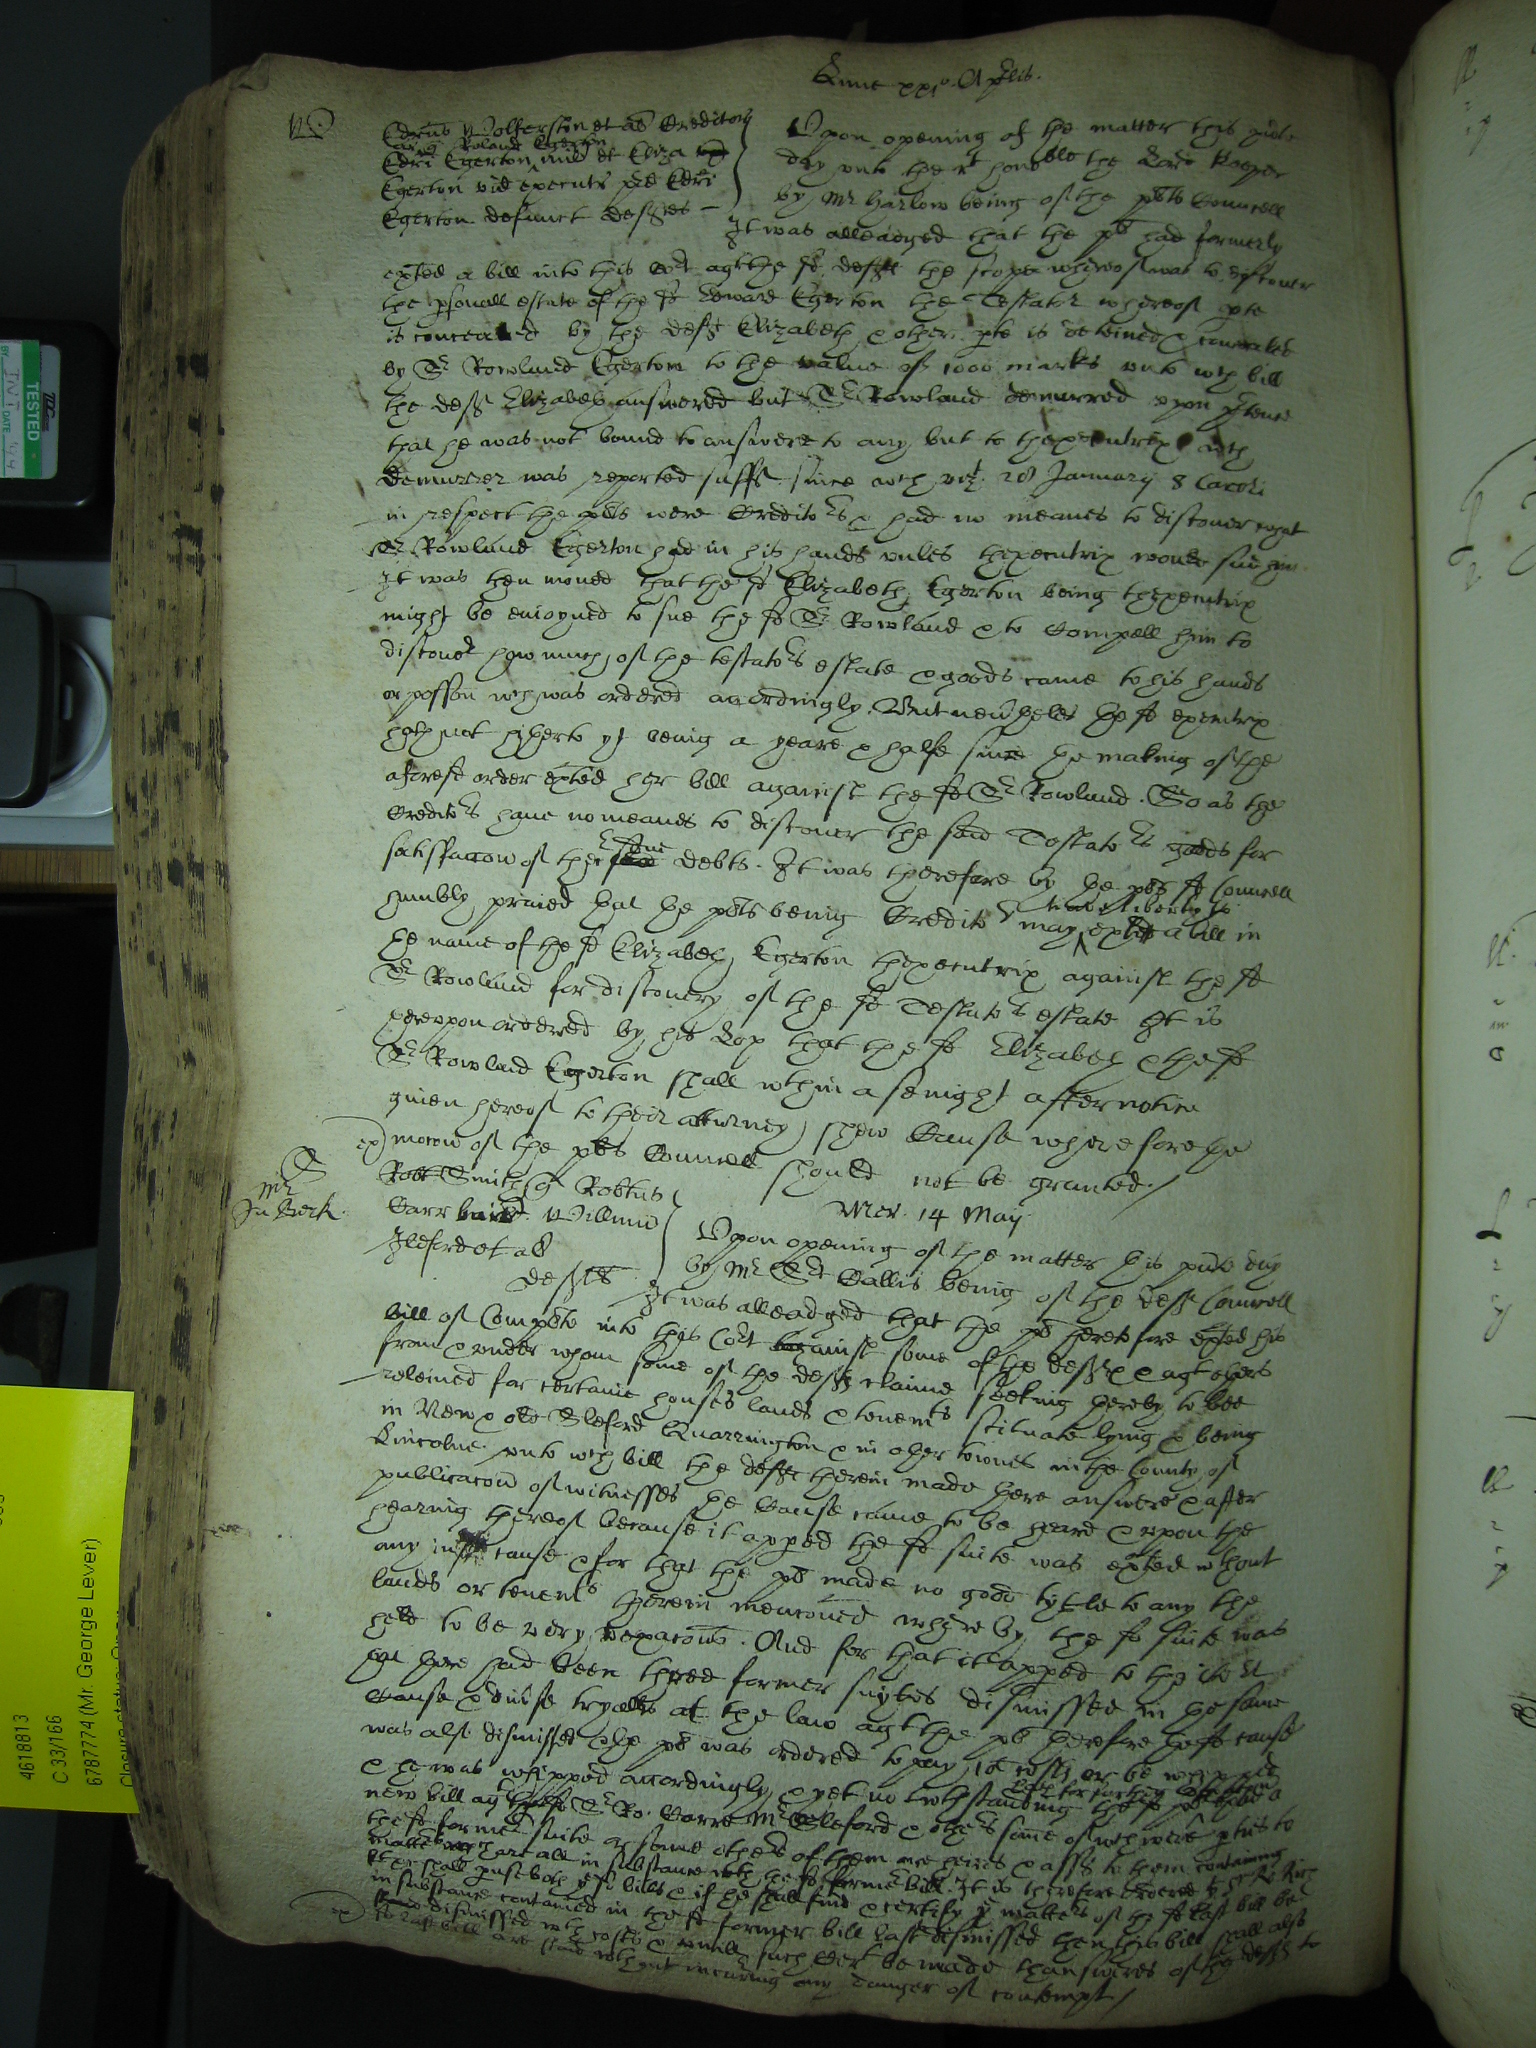 Lune xxjo Aprilis.
Edrus Wolferston et al Creditors
Roland Egerton
Edri Egerton mil et Eliza
Egerton vid executr pred Edri
Egerton defunct deftes
Upon opening of the matter this pnte
day unto the rt honoble the Lord Keeper
by Mr Harlow being of the plts Councell
It was alleadged that the plt had formerly
exhted a bill into this Cort agt the sd defts the scope whereof was to discover
the psonall estate of the sd Edward Egerton the Testator whereof pte
is concealed by the deft Elizabeth & other pte is deteined & concealed
by Sr Rowland Egerton to the value of 1000 marks unto wch bill
the deft Elizabeth answered but Sr Rowland demurred upon ptence
that he was not bound to answere to any but to thexecutrix wch
demurrer was reported sufft since wch vizt 28 January 8 Caroli
in respect the plts were Creditors & had no meanes to discover what
Sr Rowland Egerton had in his hands unles thexecutrix would sue him
It was then moved that the sd Elizabeth Egerton being thexecutrix
might be enioyned to sue the sd Sr Rowland & to Compell him to
discover how much of the testators estate & goods came to his hands
or possion wch was ordered accordingly. But nevertheles the sd executrix
hath not hitherto yt being a yeare & halfe since the making of the
aforesd order exhted her bill against the sd Sr Rowland. So as the
Creditors have no meanes to discover the said Testators goods for
satisfaccon of their debts. It was therefore by the plts sd Councell
humbly praied that the plts being Creditors may have liberty to exhte a bill in
the name of the sd Elizabeth Egerton thexecutrix against the sd
Sr Rowland for discovery of the sd Testators estate It is
hereupon ordered by his Lop that the sd Elizabeth & the sd
Sr Rowland Egerton shall wthin a senight after notice
given hereof to their attorney shew Cause wherefore the
mocon of the plts Councell should not be granted./
Mer. 14 May
S
Mr
In Berk.
Robt Smith q Robtus
Carr barrt Willmus
Sleford et al
defts
Upon opening of the matter this pnte day
by Mr Srt Callis being of the defts Councell
It was alleadged that the plt heretofore exhted his
bill of Complte into this Cort against some of the defts & agt others
from & under whom some of the defts claime seeking thereby to bee
releived for certaine houses lands & tenemts scituate lying & being
in New & old Sleford Quarrington & in other townes in the County of
Lincolne unto wch bill the defts therein made there answere & after
publicacon of witnesses the Cause came to be heard & upon the
hearing thereof because it appred the sd suite was exhted wthout
any iust cause & for that the plt made no good tytle to any the
lands or tenemts therein menconed whereby the sd suite was
held to be very vexacous. And for that it appred to the Cort
that there had been three former suytes dismissed in the same
Cause & divse tryalls at the law agt the plt therefore the sd cause
was also dismissed & the plt was ordered to pay costs or be whipped
& he was whipped accordingly & yet notwthstanding the sd plt hath exhted a
new bill agt the sd Sr Ro: Carre Mr Sleford & others some of wch were pties to
the sd former suite & some others of them are heires & assgs to them containing
matter wch are all in substance wth the sd former bill. It is therefore ordered yt Sr Ri: Rich
shall puse both ye sd bills & if he shall find & certify ye matters of the sd last bill be
in substance contained in the sd former bill last dismissed then this bill shall also
dismissed wth costs & untill such Cert be made thanswers of the defts to
ye last bill are staid wthout incurring any danger of contempt./
TESTED
DATE
4618813
C 33/166
6787774 (Mr. George Lever)